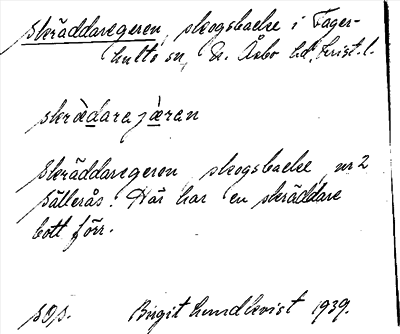 Skräddaregeren, skogsbacke i Fager-
hults sn, N. Åsbo hd, Krist. l.
skrædarejæren
Skräddaregeren skogsbacke nr 2
Sällerås. Här har en skräddare
bott förr.
Birgit Lundkvist 1939.